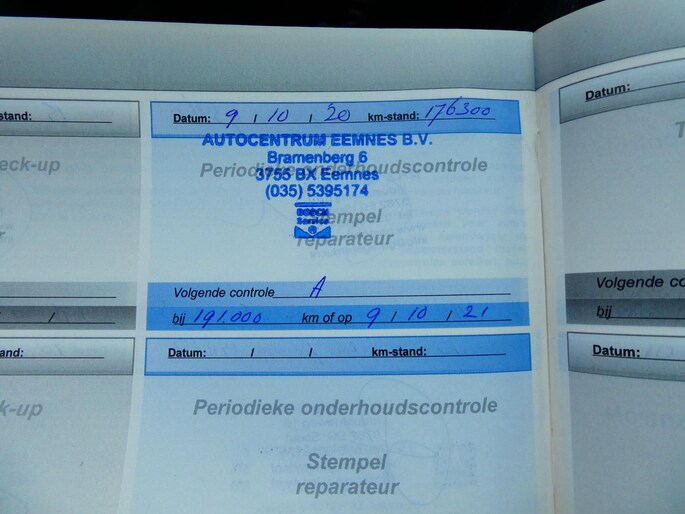 stand:
eck-up
r
/
and:
k-up
Datum: 9 / 10 / 20 km-stand: 176300
AUTOCENTRUM EEMNES B.V.
Bramenberg 6
Periodieke onderhoudscontrole
3755 BX Eemnes
(035) 5395174
BOSCH
Service
Stempel
reparateur
Volgende controle A
bij 191.000 km of op 9 / 10 / 21
Datum: / / km-stand:
Periodieke onderhoudscontrole
Stempel
reparateur
Datum:
T
Volgende co
bij
Datum: